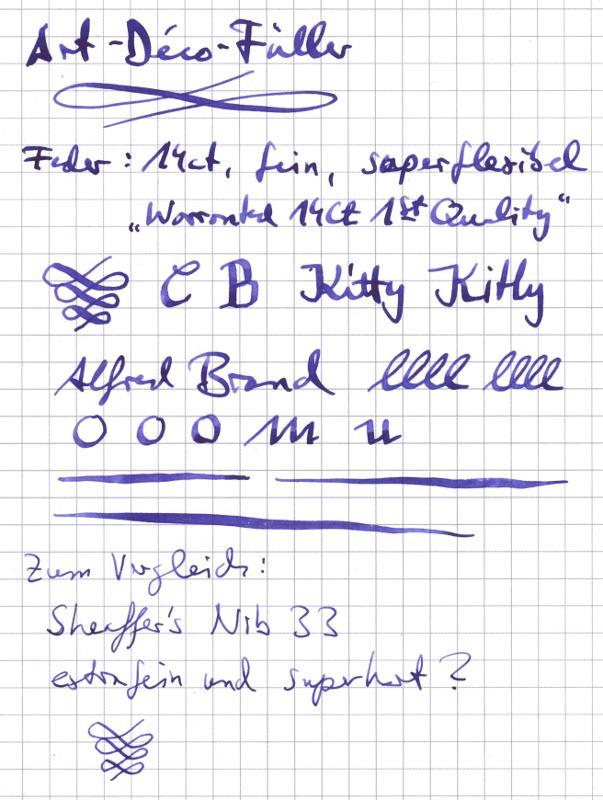 Art-Déco-Füller
Feder: 14ct, fein, superflexibel
„Warranted 14Ct 1st Quality“
C B Kitty Kitty
Alfred Brand llll llll
O O O m u
Zum Vergleich:
Sheaffer's Nib 33
extrafein und superhart?